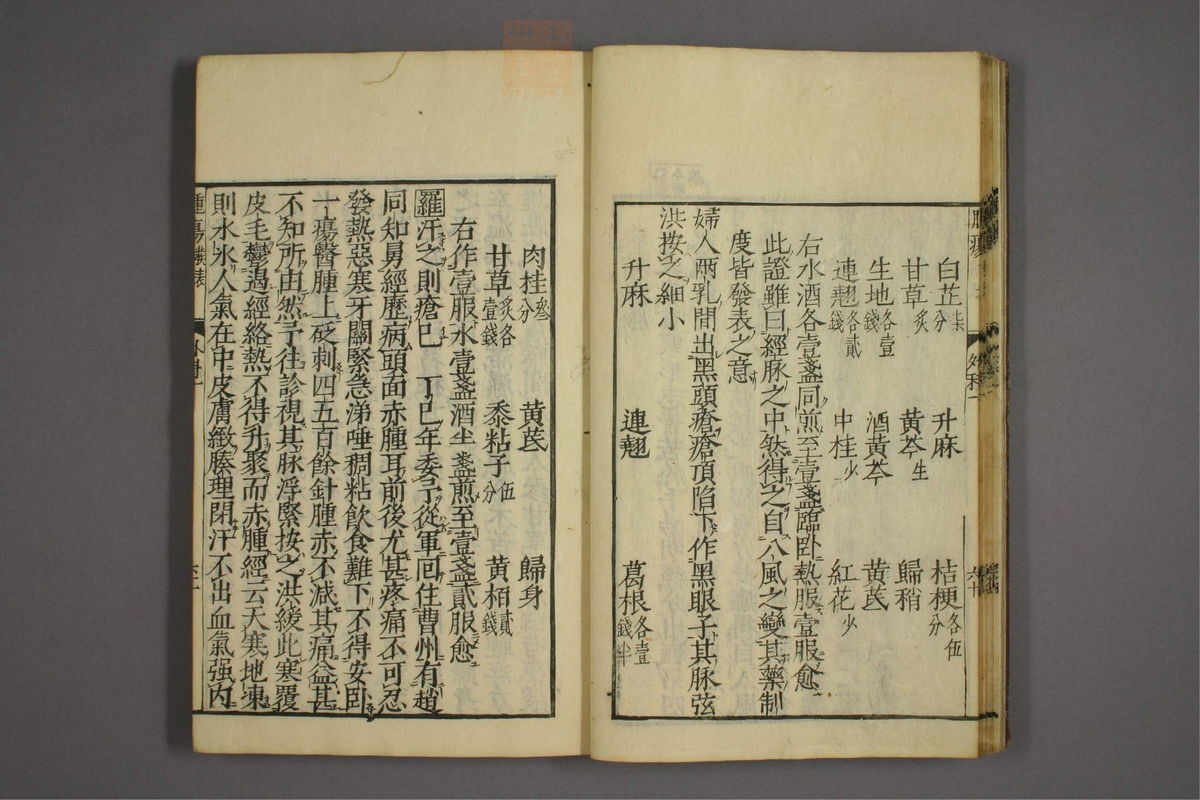 白芷柒分 升麻 桔梗各伍分
甘草炙 黃芩生 歸稍
生地各壹錢 酒黃芩 黃芪
連翹各貳錢 中桂少 紅花少
右水酒各壹盞同煎至壹盞臨卧熱服壹服愈
此證雖曰經脉之中然得之自八風之變其藥制
度皆發表之意
婦人兩乳間出黑頭瘡瘡頂陷下作黑眼子其脉弦
洪按之細小
升麻 連翹 葛根各壹錢半
肉桂叁分 黃芪 歸身
甘草炙各壹錢 黍粘子伍分 黃栢貳錢
右作壹服水壹盞酒半盞煎至壹盞貳服愈
羅汗之則瘡已 丁巳年委予從軍回住曹州有趙
同知舅經歷病頭面赤腫耳前後尤甚疼痛不可忍
發熱惡寒牙關緊急涕唾稠粘飲食難下不得安卧
一瘍醫腫上砭刺四五百餘針腫赤不減其痛益甚
不知所由然予往診視其脉浮緊按之洪緩此寒覆
皮毛鬱遏經絡熱不得升聚而赤腫經云天寒地凍
則水氷人氣在中皮膚緻腠理閉汗不出血氣强內